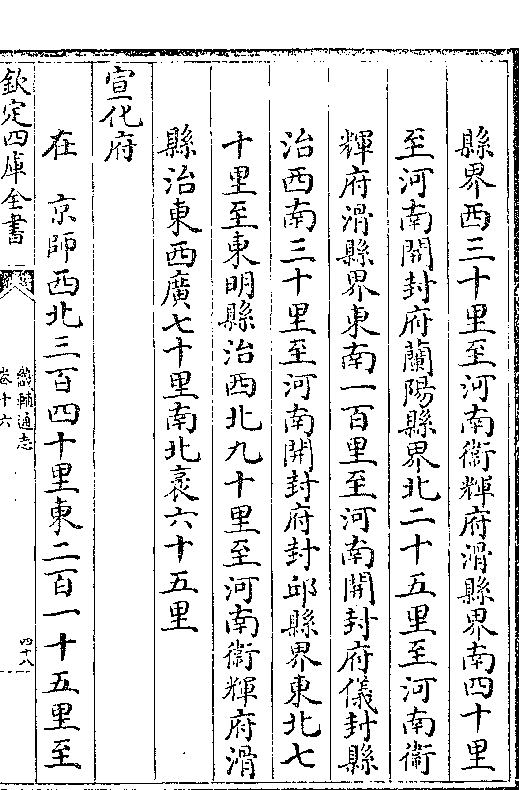 縣界西三十里至河南衞輝府滑縣界南四十里
至河南開封府蘭陽縣界北二十五里至河南衞
輝府滑縣界東南一百里至河南開封府儀封縣
治西南三十里至河南開封府封邱縣界東北七
十里至東明縣治西北九十里至河南衞輝府滑
縣治東西廣七十里南北袤六十五里
宣化府
在 京師西北三百四十里東二百一十五里至
欽定四庫全書
畿輔通志
卷十六
四十八